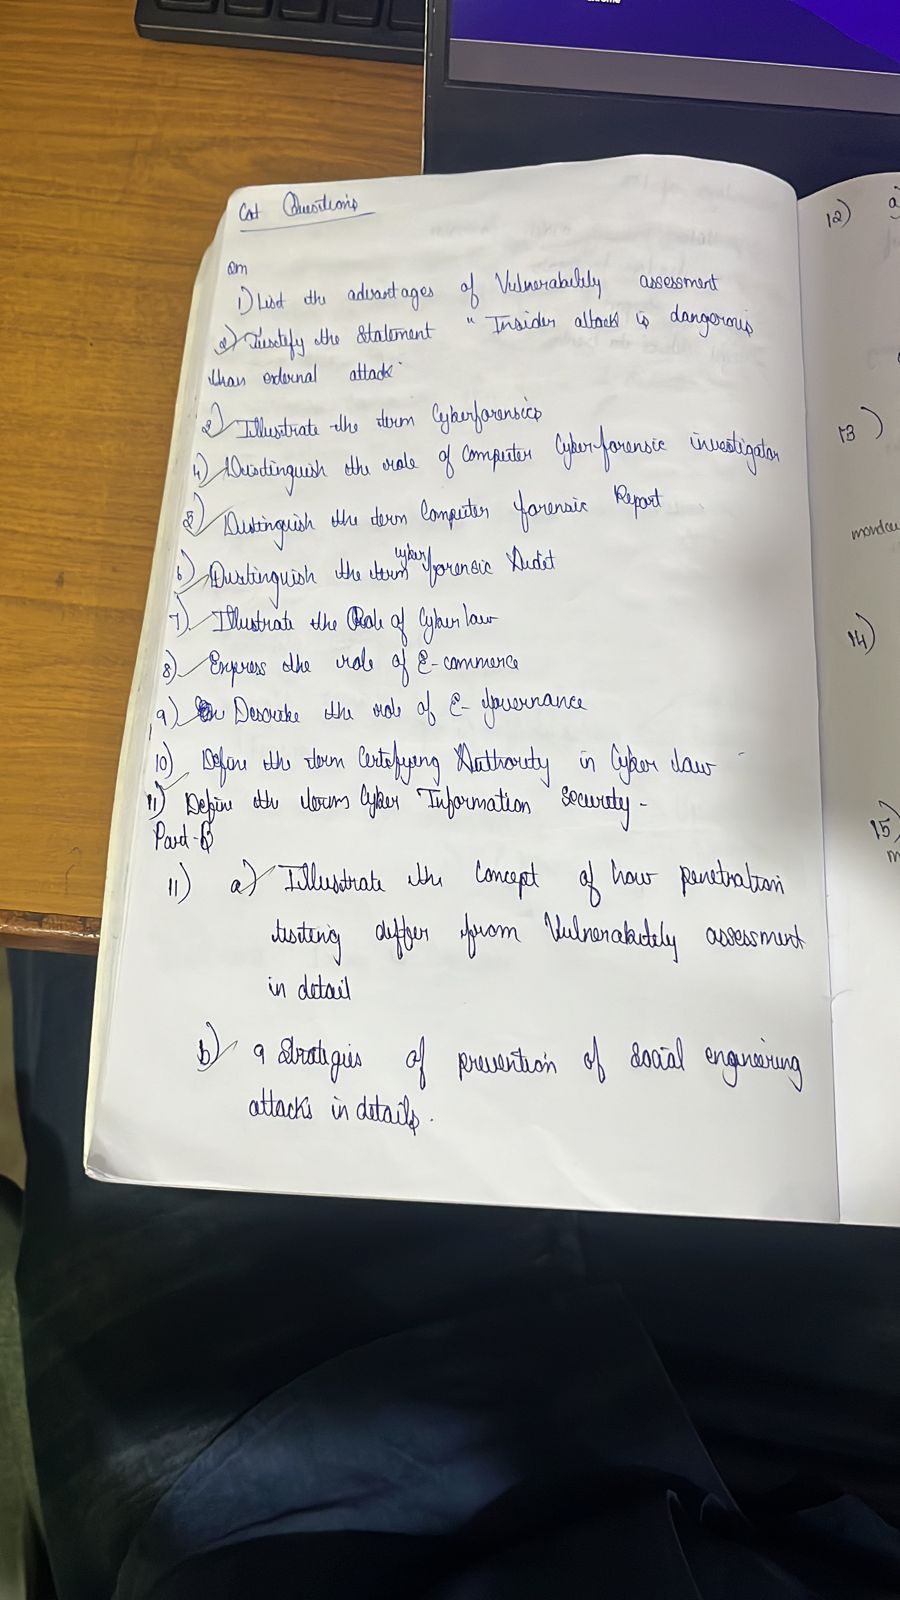 Cat Questions
2m
1) List the advantages of Vulnerability assessment
2) Justify the Statement " Insider attack is dangerous
than external attack"
3) Illustrate the term Cyberforensics
4) Distinguish the role of Computer Cyberforensic investigator
5) Distinguish the term Computer forensic Report
6) Distinguish the term cyber forensic Audit
7) Illustrate the Role of Cyber law
8) Express the role of E-commerce
9) Describe the role of E-Governance
10) Define the term Certifying Authority in Cyber law
11) Define the terms Cyber Information Security-
Part-B
11) a) Illustrate the concept of how penetration
testing differ from Vulnerability assessment
in detail
b) 9 Strategies of prevention of social engineering
attacks in details.
12) a)
13)
14)
15)